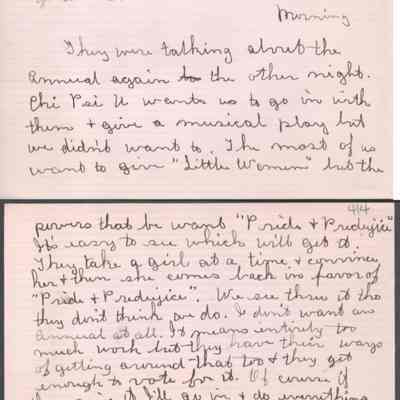 Morning
They were talking about the
Annual again to the other night.
Chi Psi U wants us to go in with
them + give a musical play but
we didn't want to. The most of us
want to give "Little Women" but the
414
powers that be want "Pride + Predujice"
It's easy to see which will get it.
They take a girl at a time + convince
her + then she comes back in favor of
"Pride + Predujice". We see thru it tho
they don't think we do. I don't want an
annual at all. It means entirely too
much work but they have their ways
of getting around that too + they get
enough to vote for it. Of course if
I'll go in + do everything